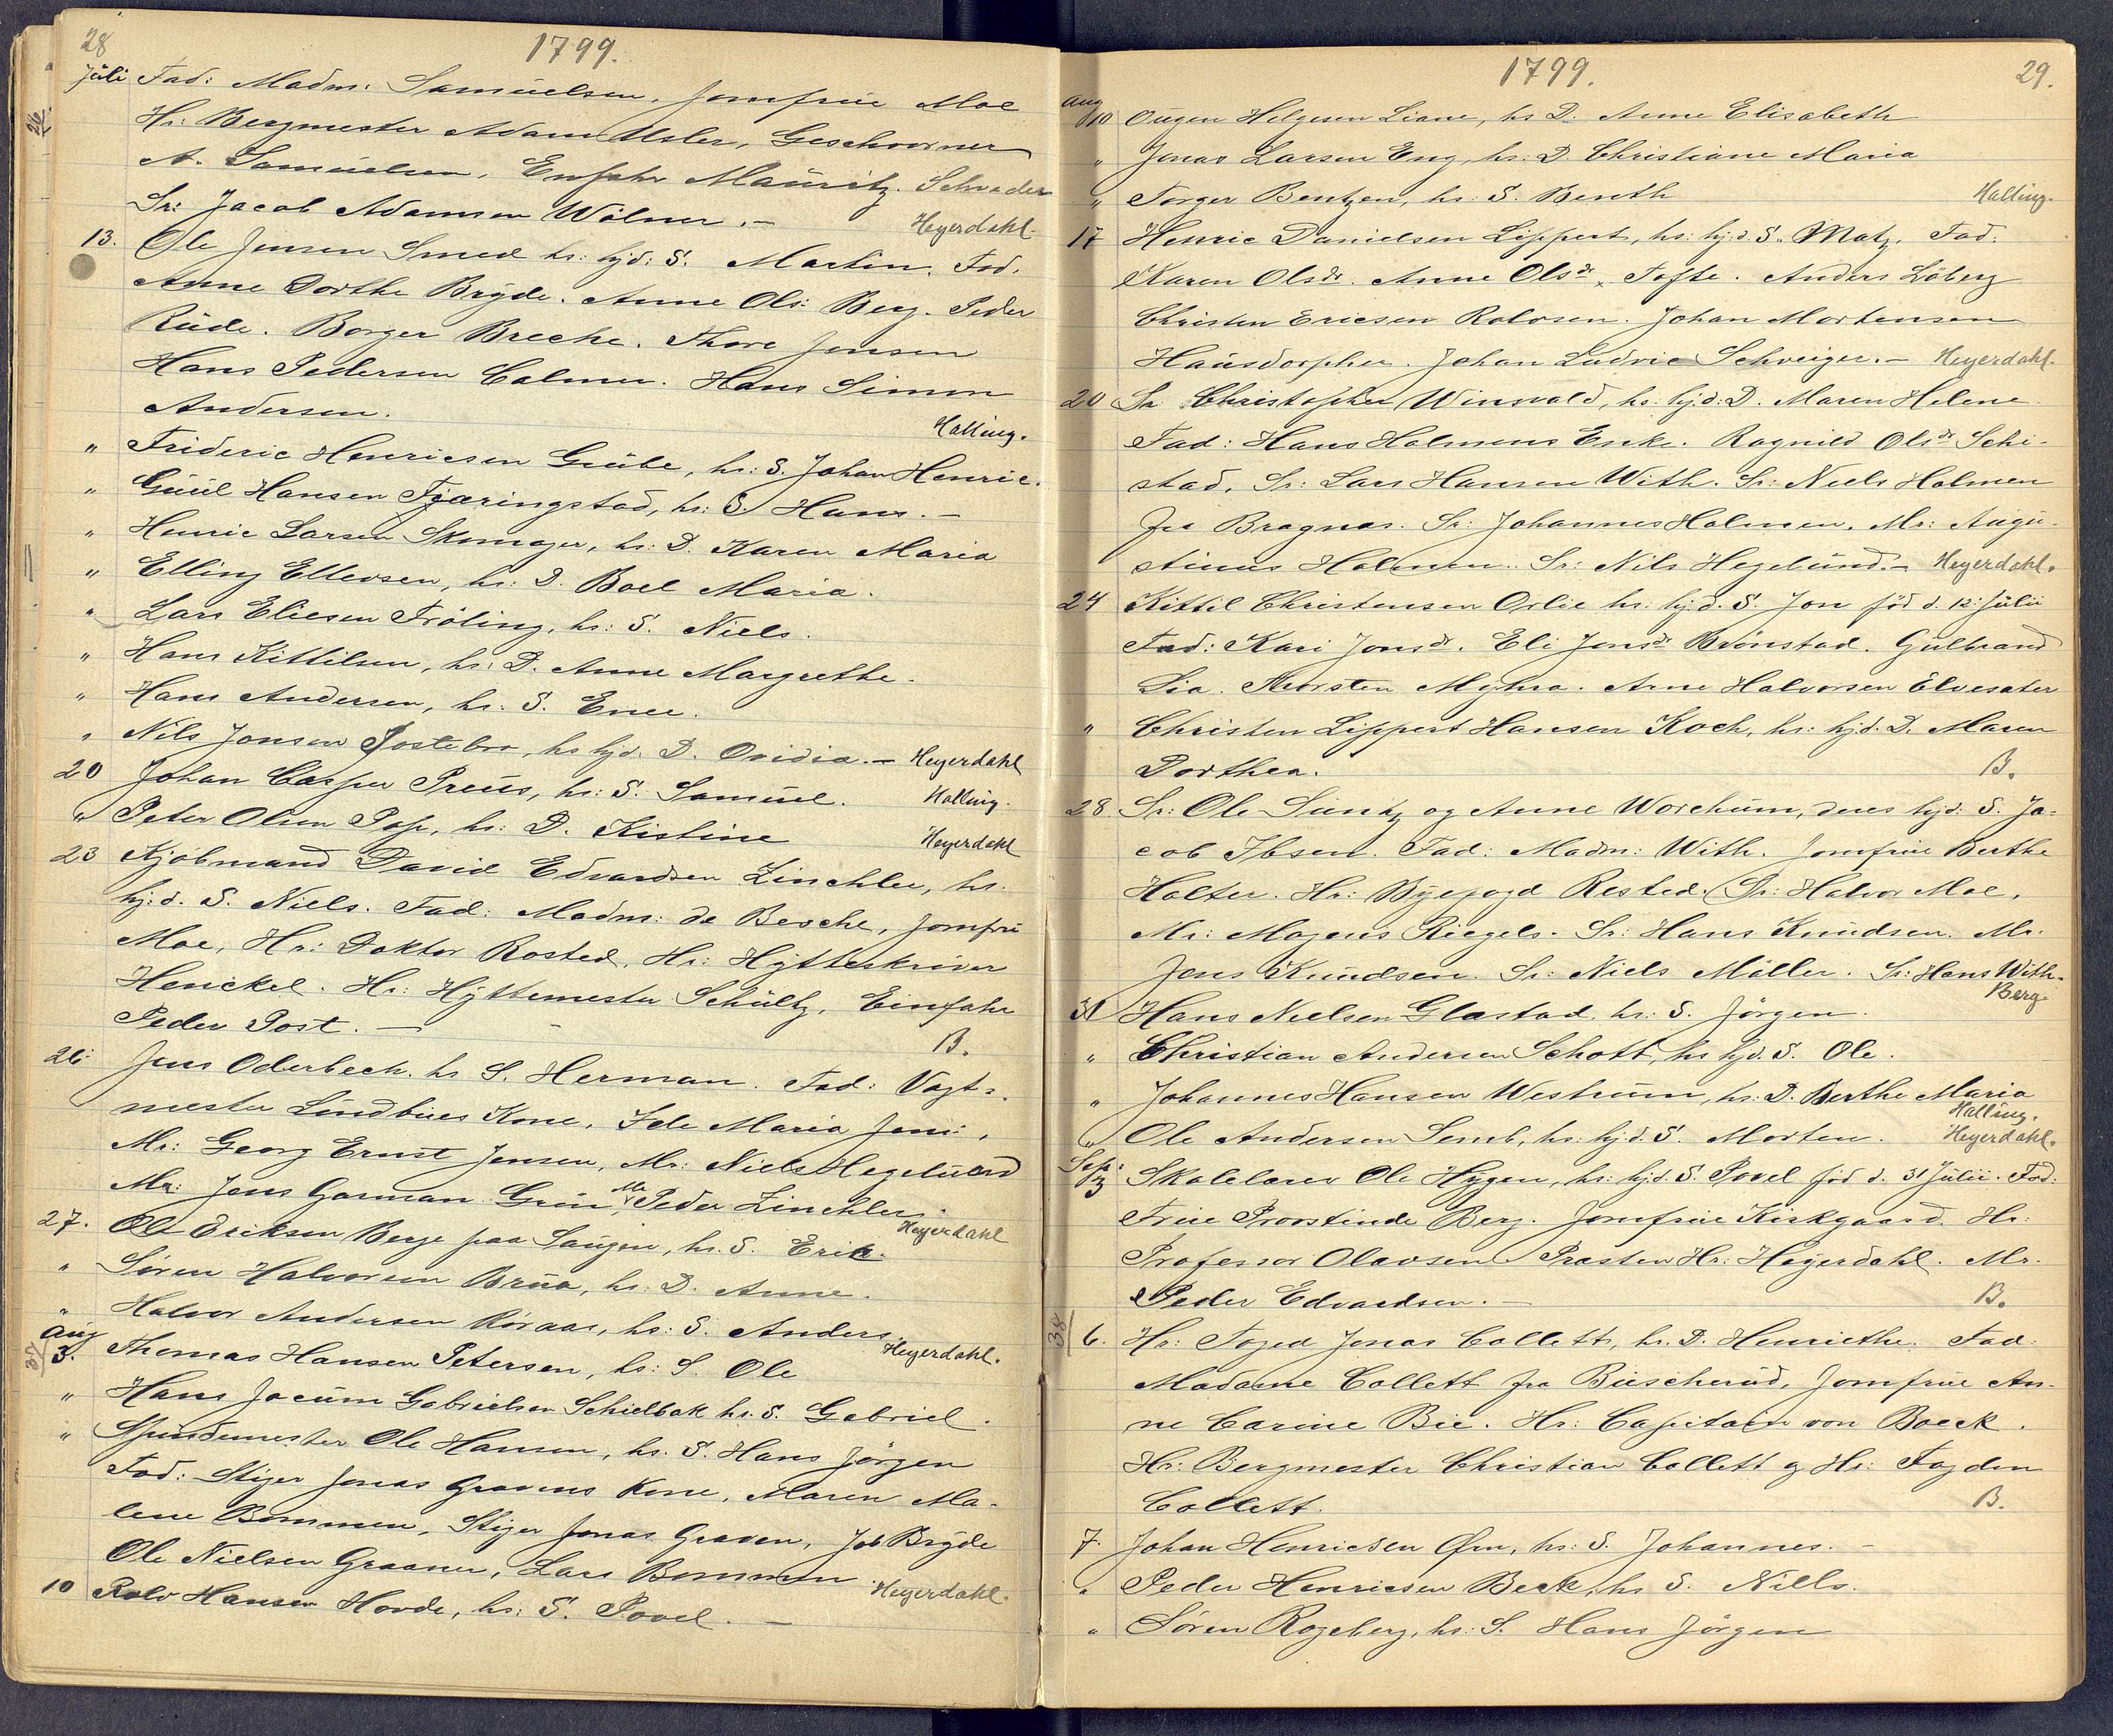 28
1799.
Juli Fad: Madm. Samuelsen, Jomfrue Moe
26
Hr: Bergmester Adam Usler, Geschworner
A. Samuelsen. Enfahr Mauritz Schrader
Sr: Jacob Adamsen Wölner. — Heyerdahl.
13. Ole Jensen Smed hs: hj:d: S. Martin. Fad.
Anne Dorthe Bryde. Anne Ols: Berg. Peder
Rude. Borger Breche. Thore Jensen
Hans Pedersen Calmer. Hans Simon
Andersen. Halling.
" Frideric Henricsen Grube, hs: S. Johan Henric.
" Guul Hansen Tjæringstad, hs: S. Hans. —
" Henric Larsen Skomager, hs: D. Karen Maria
" Elling Ellevsen, hs: D. Boel Maria.
" Lars Eliesen Fröling, hs: S. Niels.
" Hans Kittilsen, hs: D. Anne Margrethe.
" Hans Andersen, hs. S. Enee.
" Nils Jonsen Jostebro, hs hjd. D. Ovidia. — Heyerdahl
20 Johan Casper Preus, hs: S. Samuel. Halling.
" Peter Olsen Pop, hs: D. Kistine Heyerdahl
23 Kjöbmand David Edvardsen Zinchler, hs.
hj:d. S. Niels. Fad: Madm: de Besche, Jomfru
Moe, Hr: Doktor Rosted, Hr: Hytteskriver
Henckel. Hr: Hyttemester Schultz, Einfahr
Peder Post. — B.
26: Jens Oderbech. hs S. Herman. Fad: Vagt-
mester Lindbües Kone, Idle Maria Jens:,
Mr: Georg Ernst Jensen, Mr: Niels Hegelund
Mr: Jens Gasman Grün, Mr Peder Zinchler.
Heyerdahl
27. Ole Ericksen Berge paa Saugen, hs. S. Erik.
" Sören Halvorsen Brua, hs: D. Anne.
" Halvor Andersen Röraas, hs: S. Anders.
Heyerdahl.
Aug
37
3. Thomas Hansen Petersen, hs: S. Ole
" Hans Jocum Gabrielsen Schielbak hs. S. Gabriel.
" Spundemester Ole Hansen, hs. S. Hans Jörgen
Fad: Stiger Jonas Gravens Kone, Maren Ma-
lene Bommen, Stiger Jonas Graven, Job Bryde
Ole Nielsen Graaner, Lars Bommen. Heyerdahl.
10 Rolv Hansen Hovde, hs: S. Povel. —
1799.
29.
Aug
10 Ougen Helgesen Liane, hs D. Anne Elisabeth
" Jonas Larsen Eng, hs: D. Christiane Maria
" Torger Bentzen, hs: S. Benth Halling.
17 Henric Danielsen Lippert, hs: hj:d. S. Matz. Fad:
Karen Olsdr. Anne Olsdr. Tofte. Anders Löberg
Christen Ericsen Rolvsen. Johan Mortensen
Hausdorpher. Johan Ludvic Schweiger. — Heyerdahl.
20 Sr. Christopher Winsvald, hs: hj.d: D. Maren Helene.
Fad: Hans Holmens Enke. Ragnild Olsdr Schi-
stad, Sr: Lars Hansen With. Sr: Niels Holmen
fra Bragnæs. Sr: Johannes Holmen. Mr: Augu-
stinus Holmen. Sr: Nils Hegelund. — Heyerdahl.
24 Kittil Christensen Orlie hs: hj.d. S. Jon föd d. 12: Julii
Fad: Kari Jonsdr. Eli Jonsdr Brönstad. Gulbrand
Lia. Thorsten Myhra. Arne Halvorsen Elvesæter
" Christen Lippert Hansen Koch, hs: hj.d. D. Maren
Dorthea. B.
28. Sr: Ole Suntz og Anne Worchum, deres hjd: S. Ja-
cob Ibsen. Fad: Madm: With. Jomfrue Berthe
Holter. Hr: Byefogd Rested. Sr: Halvor Moe,
Mr: Mogens Riegels. Sr: Hans Knudsen. Mr.
Jens Knudsen. Sr: Niels Möller. Sr: Hans With.
Berg.
31 Hans Nielsen Glæstad, hs: S. Jörgen.
" Christian Andersen Schott, hs hj.d. S. Ole.
" Johannes Hansen Westrum, hs: D. Berthe Maria
Halling.
" Ole Andersen Semb, hs: hj.d. S. Morten. Heyerdahl.
Sep:
3 Skolelærer Ole Hygen, hs: hj.d. S. Povel föd d. 31 Julii. Fad:
Frue Provstinde Berg. Jomfrue Kirkgaard. Hr:
Professor Olavsen. Præsten Hr: Heyerdahl. Mr.
Peder Edvardsen. — B.
38
6. Hr: Foged Jonas Collett, hs. D. Henriethe. Fad.
Madame Collett fra Buscherud, Jomfrue An-
ne Carine Bie. Hr: Capitain von Boeck.
Hr: Bergmester Christian Collett og Hr: Fogden
Collett. B.
7. Johan Henricsen Örn, hs: S. Johannes. —
" Peder Henricsen Beck, hs S. Niels.
" Sören Rogeberg, hs: S. Hans Jörgen